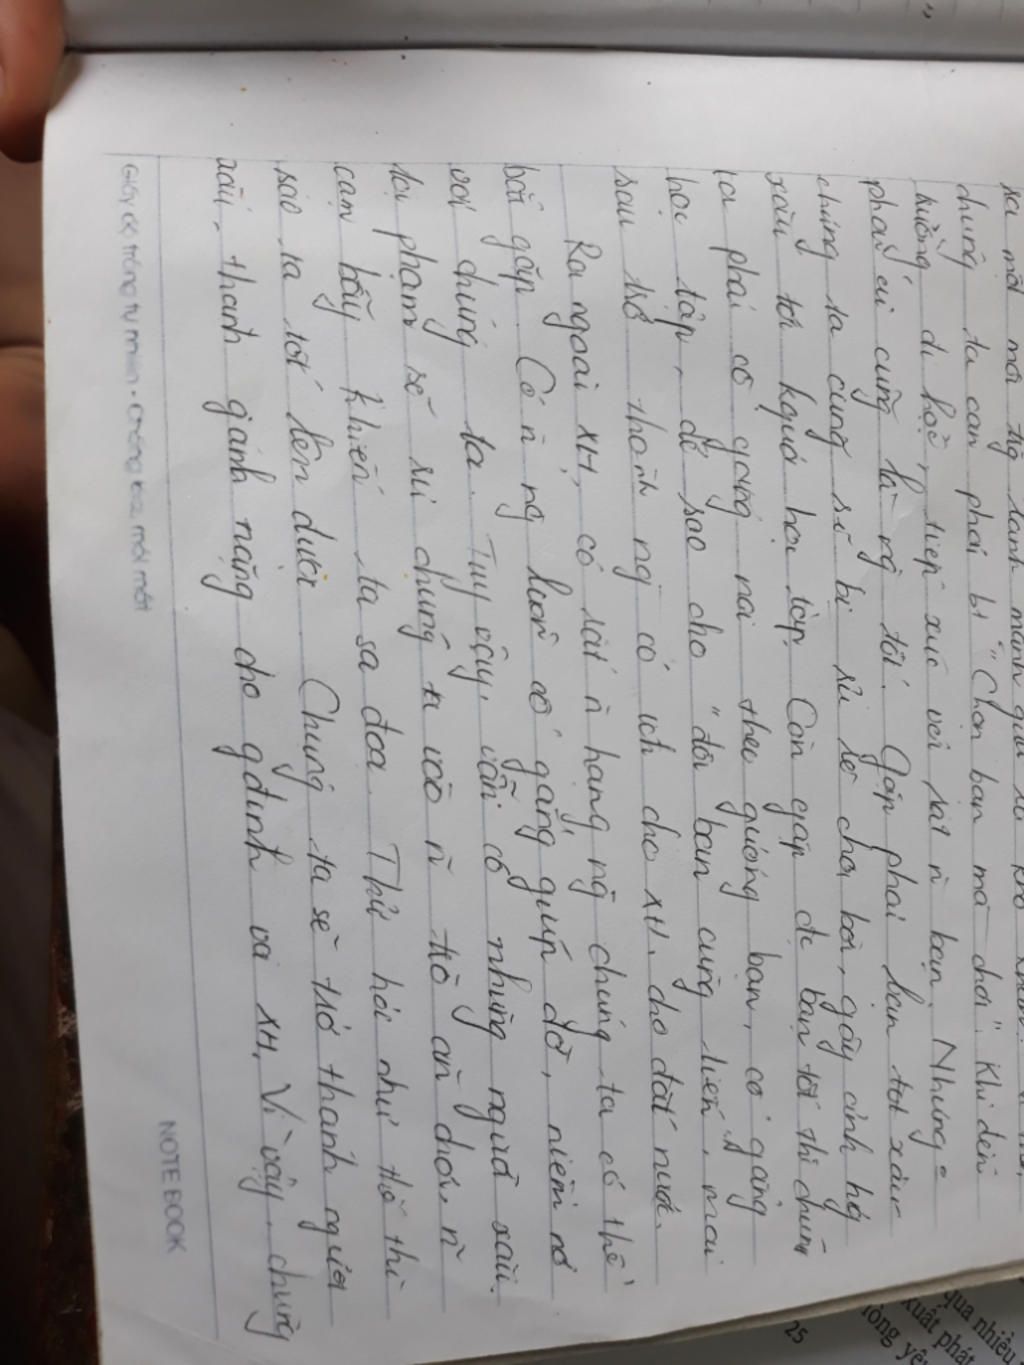 chúng ta cần phải bt "Chọn bạn mà chơi". Khi đến
trường đi học, tiếp xúc với rất n bạn. Nhưng =
phải cứ cũng là ng tốt. Gặp phải bạn tốt xấu
chúng ta cũng sẽ bị rủ rê chơi bời, gây ảnh hg
xấu tới kquả học tập. Còn gặp đc bạn tốt thì chúng
ta phải cố gắng noi theo gương bạn, cố gắng
học tập, để sao cho "đôi bạn cùng tiến", mai
sau trở thành ng có ích cho XH, cho đất nước.
Ra ngoài XH, có rất n hạng ng chúng ta có thể
bắt gặp. Có n ng luôn cố gắng giúp đỡ, niềm nở
với chúng ta. Tuy vậy, vẫn có những người xấu.
tội phạm sẽ rủ chúng ta vào n trò ăn chơi, n
cạm bẫy khiến ta sa đọa. Thử hỏi như thế thì
sao ta tốt lên được. Chúng ta sẽ trở thành người
xấu, thành gánh nặng cho gđình và XH. Vì vậy, chúng
Giấy có trắng tự nhiên - Chống lóa, mỏi mắt
NOTE BOOK
25
qua nhiều
xuất phát
lòng yê